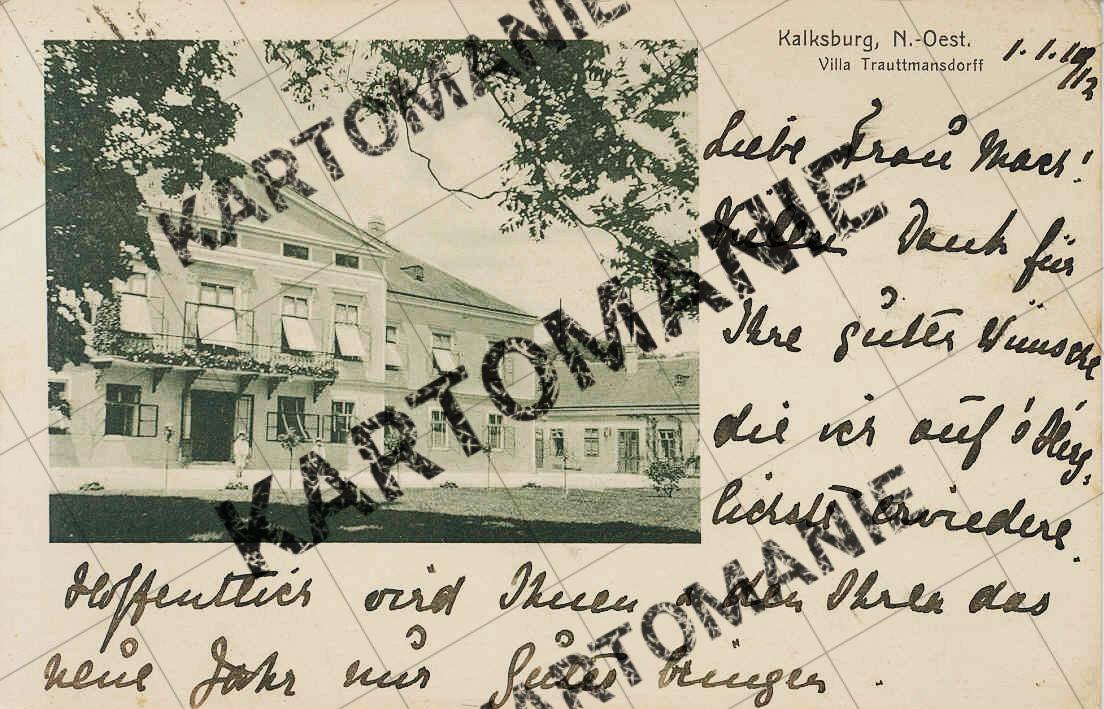 Kalksburg, N.-Oest.
Villa Trauttmansdorff
1.1.19
/12
Liebe Frau
Vielen Dank für
Ihre guten Wünsche
die ich auf's Herz,
lichste erwiedere.
Hoffentlich wird Ihnen u den Ihren das
neue Jahr nur Gutes bringen.
KARTOMANIE
KARTOMANIE
KARTOMANIE
KARTOMANIE